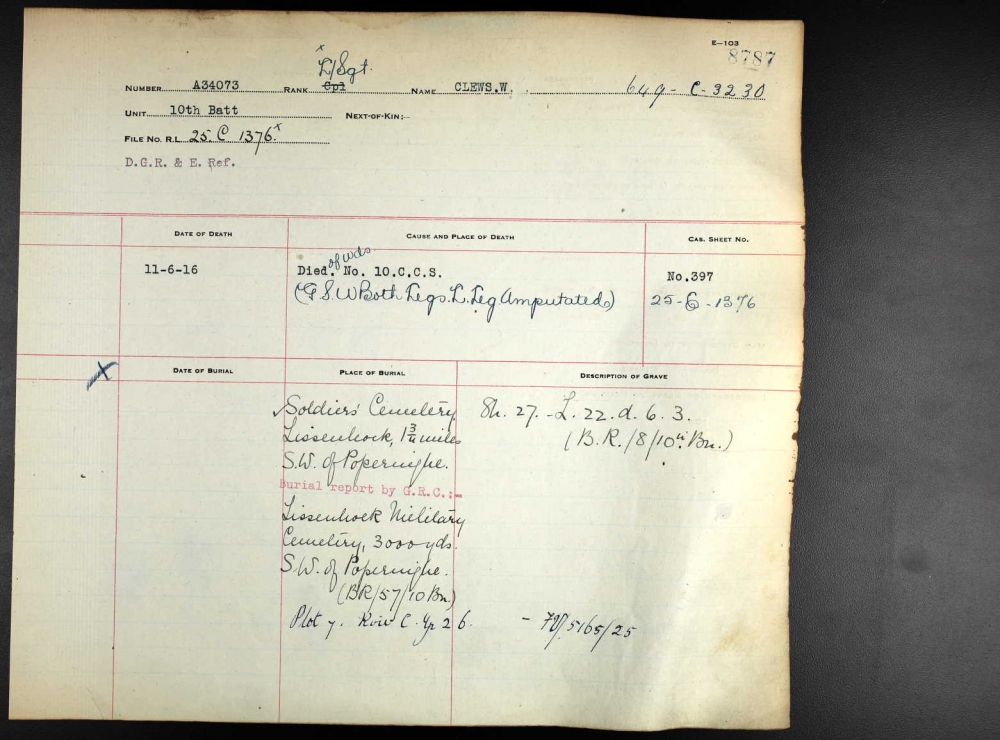 E—103
8787
x L/Sgt.
NUMBER A34073 RANK Cpl NAME CLEWS.W. 649 - C-3230
UNIT 10th Batt NEXT-OF-KIN:—
FILE No. R.L. 25. C 1376. x
D.G.R. & E. Ref.
DATE OF DEATH CAUSE AND PLACE OF DEATH CAS. SHEET NO.
of wds.
11-6-16 Died. No. 10.C.C.S. No.397
(G.S.W Both Legs. L. Leg Amputated) 25-C-1376
x DATE OF BURIAL PLACE OF BURIAL DESCRIPTION OF GRAVE
Soldiers' Cemetery Sh. 27. - L. 22. d. 6. 3.
Lissenhoek, 1 3/4 miles (B.R./8/10th Bn.)
S.W. of Poperinghe.
Burial report by G.R.C.:—
Lissenhoek Military
Cemetery, 3000 yds.
S.W. of Poperinghe.
(BR/57/10 Bn)
Plot 7. Row C. Gr 26. - /5165/25